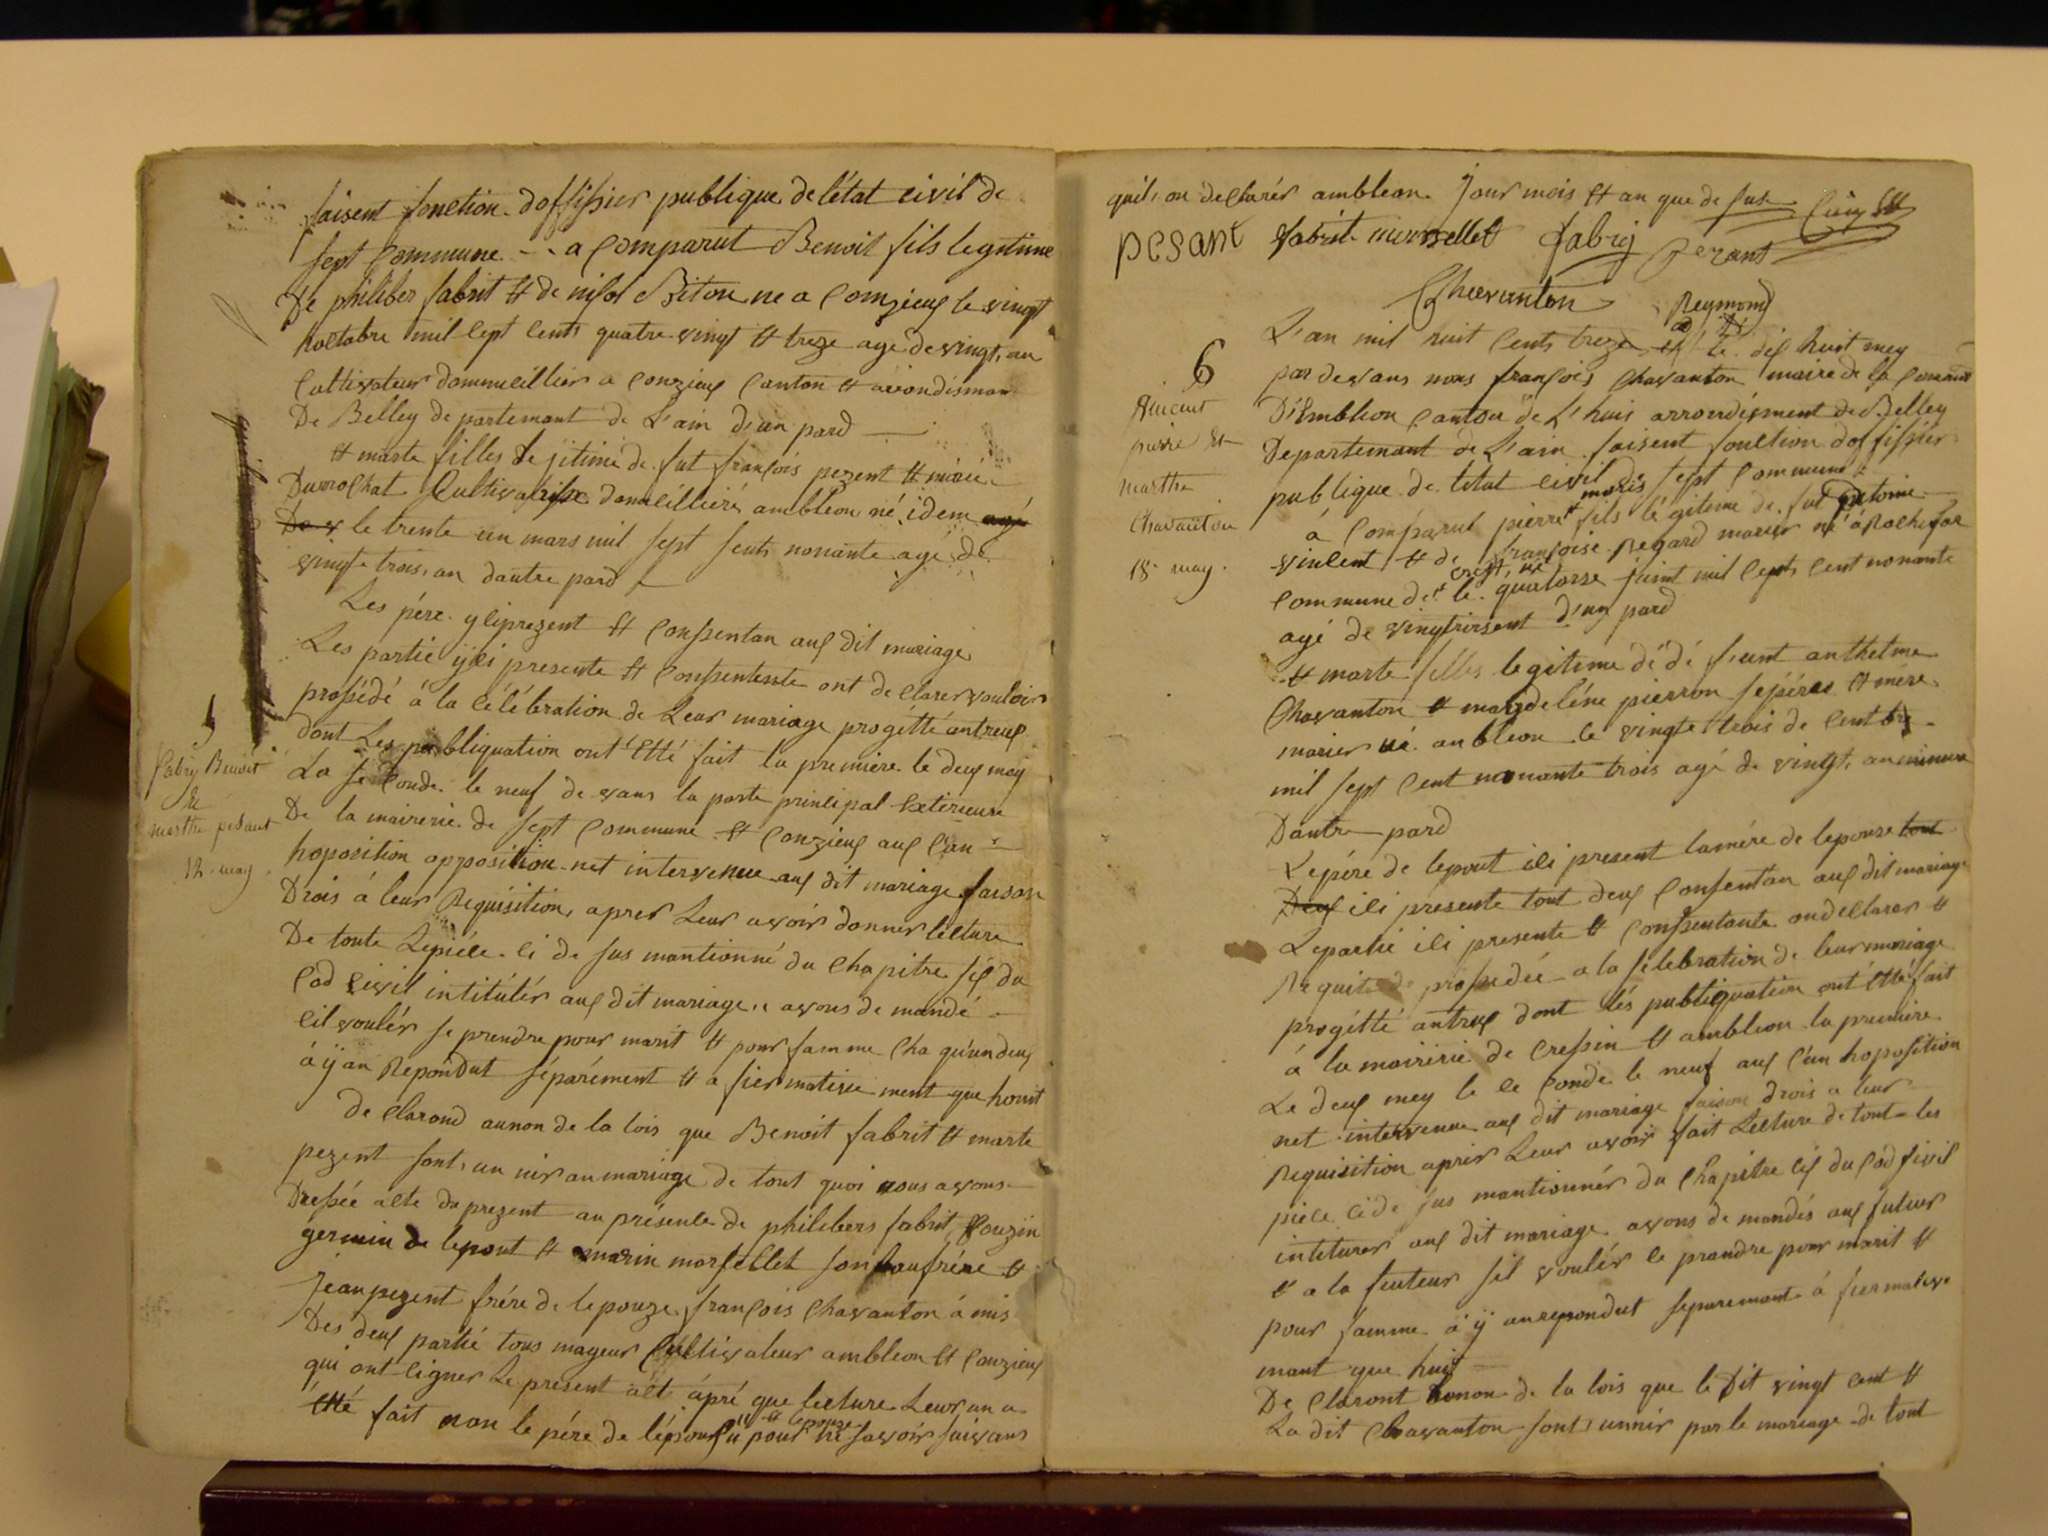 faisent fonction doffissier publique de létat civil de
sept Commune - a Comparut Benoit fils legitime
De philiber fabrit et de Biton ne a Conzieux le vingt
hoctobre mil sept cents quatre vingt et treze age de vingt, an
Cultivateur dommeillier a Conzieux Canton et
De Belley departemant de L'ain d'un pard
et marte filles Lejitime de fut françois pezent et
Durrochat domeillieré ambléon né idem agé
Da le trente un mars mil sept sents nonante agé de
vingt trois, an dautre pard
Les pére yciprezent et Conssentan aux dit mariage
Les partié ÿci presente et Conssentente ont declarer vouloir
prossédé á la Célébration de Leur mariage progétté antreux
dont Les publiquation ont étté fait la premiere le deux mey
5
fabry Benoit
et
marthe pesant
12. may
La seconde le neuf devans la porte prinsipal Exterieure
De la mairerie de sept Commune et Conzieux aux L'an
hoposition opposition net intervenue aux dit mariage faison
Drois á leur Requisition, apres Leur avoir donner lecture
De toute Lepiéce ci de sus mantionné du Chapitre six du
Cod Civil intitulér aux dit mariage avons de mandé
cil voulér se prendre pour marit et pour famme Cha qu'un deux
á ÿ an Repondut séparément et a fiermative ment que houit
de Clarond aunon de la lois que Benoit fabrit et marte
pezent sont, un nir au mariage de tout quoi nous avons
Dressée acte du prezent an présence de philibers fabrit Couzin
germin de lepout et marin morsellet son baufrére et
Jean pezent frére de lepouze, françois Chavanton á mis
Des deux partié tous mageur Cultivateur ambleon et Conzieux
qui ont cigner Le present act ápré que lecture Leur an a
étté fait non le pére de lépoux et lepouze pour ne savoir suivans
quil, on declarér ambleon Jour mois et an que de sus
pesant fabrit morsellet fabry Pezant
Chavanton Reymond
6
Vincent
pierre et
marthe
Chavanton
18 may
L'an mil huit Cents treze et le dix huit mey
par devans nous françois Chavanton maire de la Comune
D'Emblion Canton de L'huis arroendisment de Belley
Departemant de L'ain faisent fonction doffissier
publique de letat civil sept Commune
á Comparut pierre maris fils légitime de fut Antoine
vincent et de françoise Regard marier né á Rochefor
Commune de Crepin né le quatorse juint mil Cept Cent nonante
agé de vingtroisent d'un pard
et marte filles legitime dé dé funt anthelme
Chavanton et magdeléne pierron sepéres et mére
marier né anbleon le vingte trois de centbre
mil sept Cent nonante trois agé de vingt, an mineure
Dautre pard
Lepére de lepout ici present lamére de lepouze tout
Deux ici presente tout deux Consentan aux dit mariage
Lepartié ici presente et Conssentante ondeClarer et
Requit de prossedée a la sélebration de leur mariage
progétté antreux dont lés publiquation ont étté fait
á la mairirie de Cressin et amblion la premiere
Le deux mey le ce Conde le neuf aux C'un hoposition
net intervenue aux dit mariage faison drois a leur
Requisition aprés Leur avoir fait Lecture de tout les
piéce cide sus mantionnér du Chapitre cix du Cod sivil
intiturer aux dit mariage avons de mandés aux futur
et a la feuteur sil voulér ce prandre pour marit et
pour famme á ÿ anrepondut separemant á fiermative
mant que huit
De Claront honon de la lois que le Dit vingt cent et
La dit Chavanton sont unnir par le mariage de tout